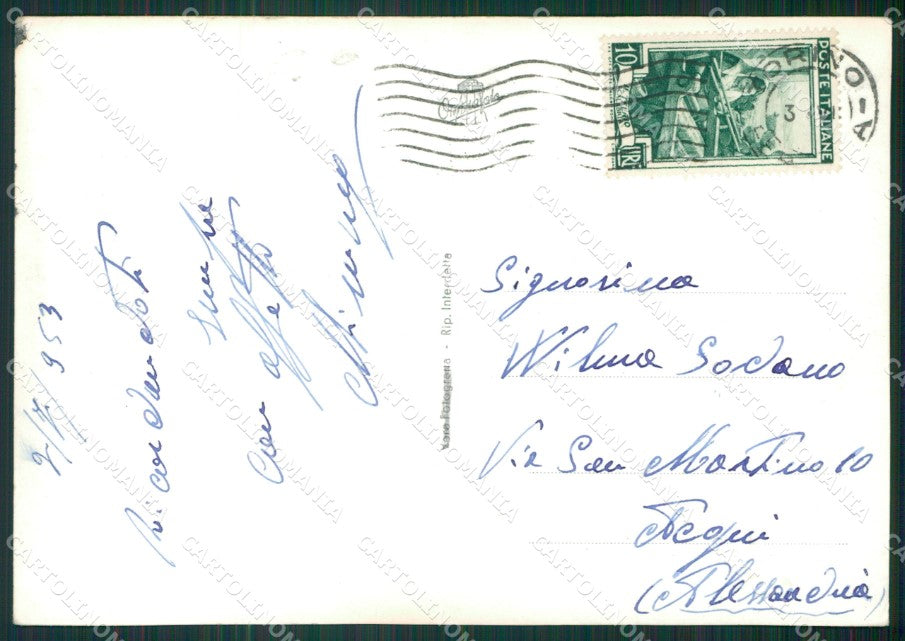 2/7/953
Ricordandoti
sempre
con affetto
Vera Fotografia - Rip. Interdetta
10
LIRE
POSTE ITALIANE
TORINO - A
3
Signorina
Wilma Sodano
Via San Martino 10
Acqui
(Alessandria)
CARTOLINOMANIA